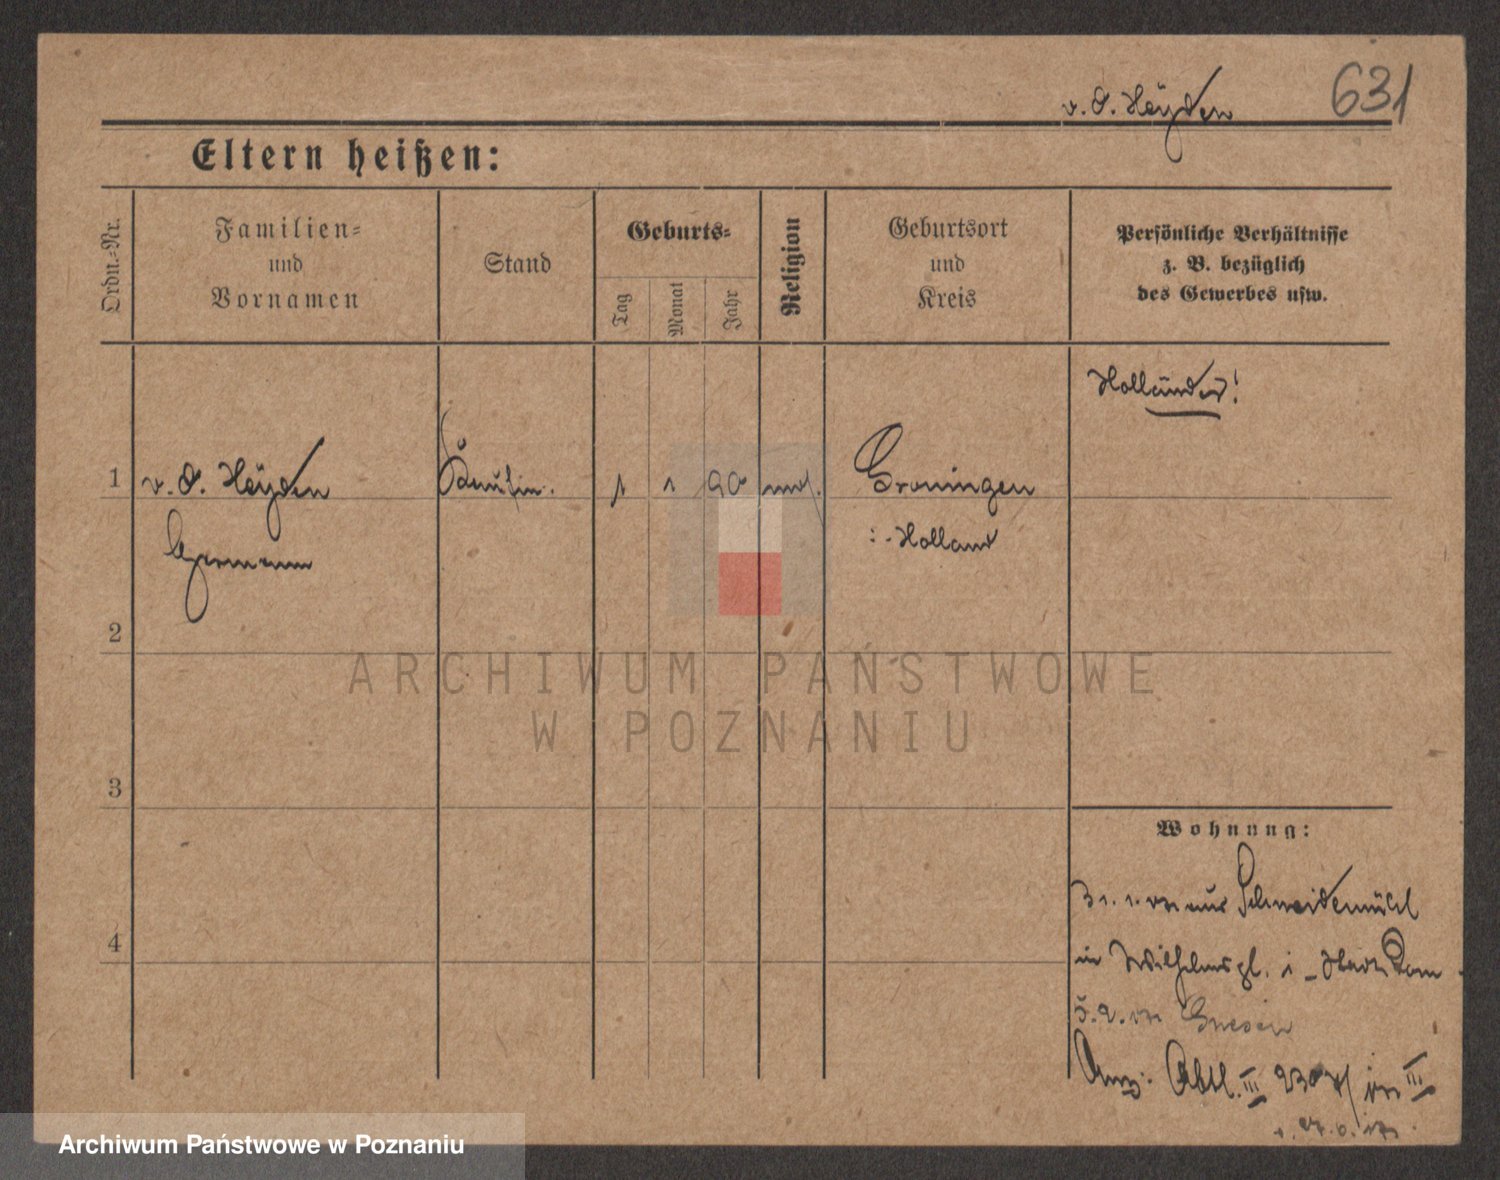 v. d. Heÿden 631
Eltern heißen:
Ordn.-Nr.
Familien-
und
Vornamen
Stand
Geburts-
Tag
Monat
Jahr
Religion
Geburtsort
und
Kreis
Persönliche Verhältnisse
z. B. bezüglich
des Gewerbes usw.
Holländer!
1 v. d. Heÿden 1 1 90 Groningen
Hermann Holland
2
3
4
Wohnung:
31. 1. aus Schneidemühl
in Wilhelmspl.
5. 2. Gnesen
Abtl. III III
ARCHIWUM PAŃSTWOWE
W POZNANIU
Archiwum Państwowe w Poznaniu